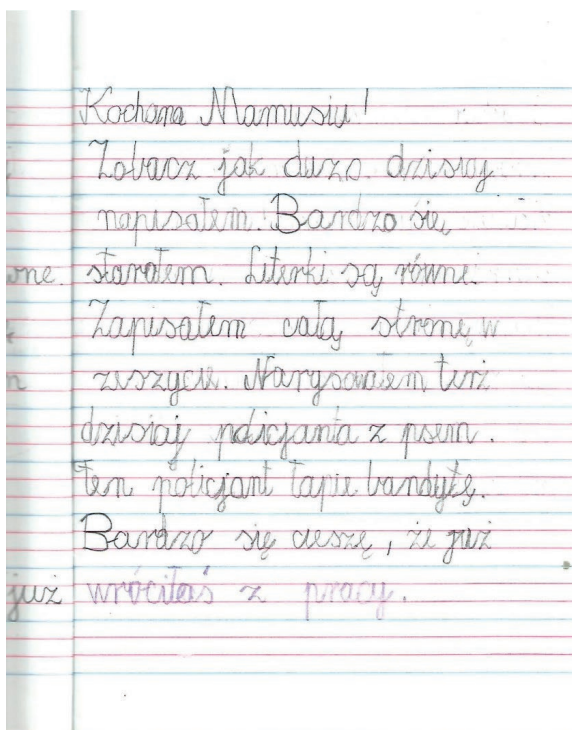 Kochana Mamusiu!
Zobacz jak dużo dzisiaj
napisałem. Bardzo się
wne. starałem. Literki są równe.
Zapisałem całą stronę w
n zeszycie. Narysowałem też
dzisiaj policjanta z psem.
Ten policjant łapie bandytę.
Bardzo się cieszę, że już
już wróciłaś z pracy.